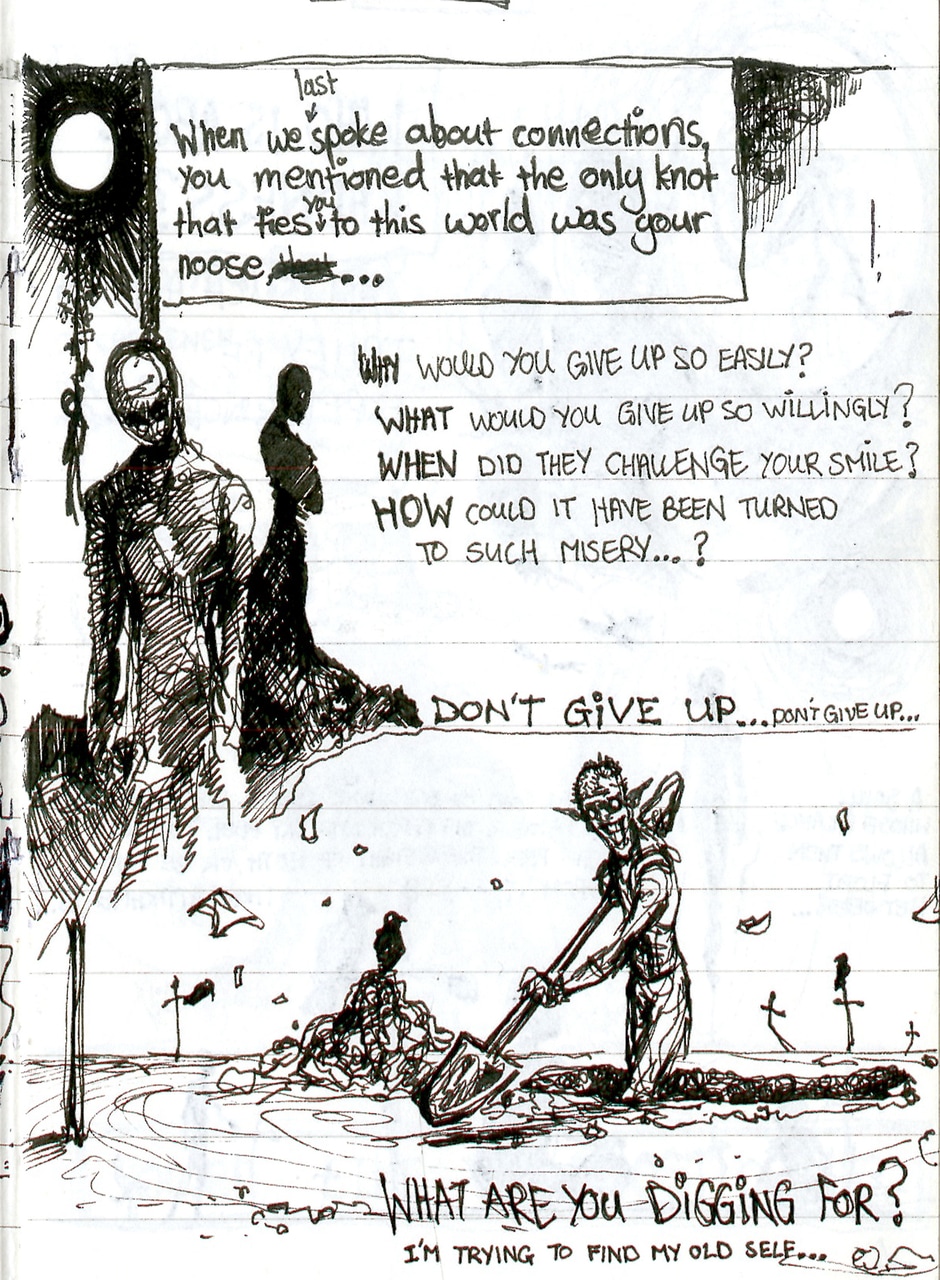 When we last spoke about connections,
you mentioned that the only knot
that ties you to this world was your
noose, ...
WHY WOULD YOU GIVE UP SO EASILY?
WHAT WOULD YOU GIVE UP SO WILLINGLY?
WHEN DID THEY CHALLENGE YOUR SMILE?
HOW COULD IT HAVE BEEN TURNED
TO SUCH MISERY...?
DON'T GIVE UP...DON'T GIVE UP...
WHAT ARE YOU DIGGING FOR?
I'M TRYING TO FIND MY OLD SELF...